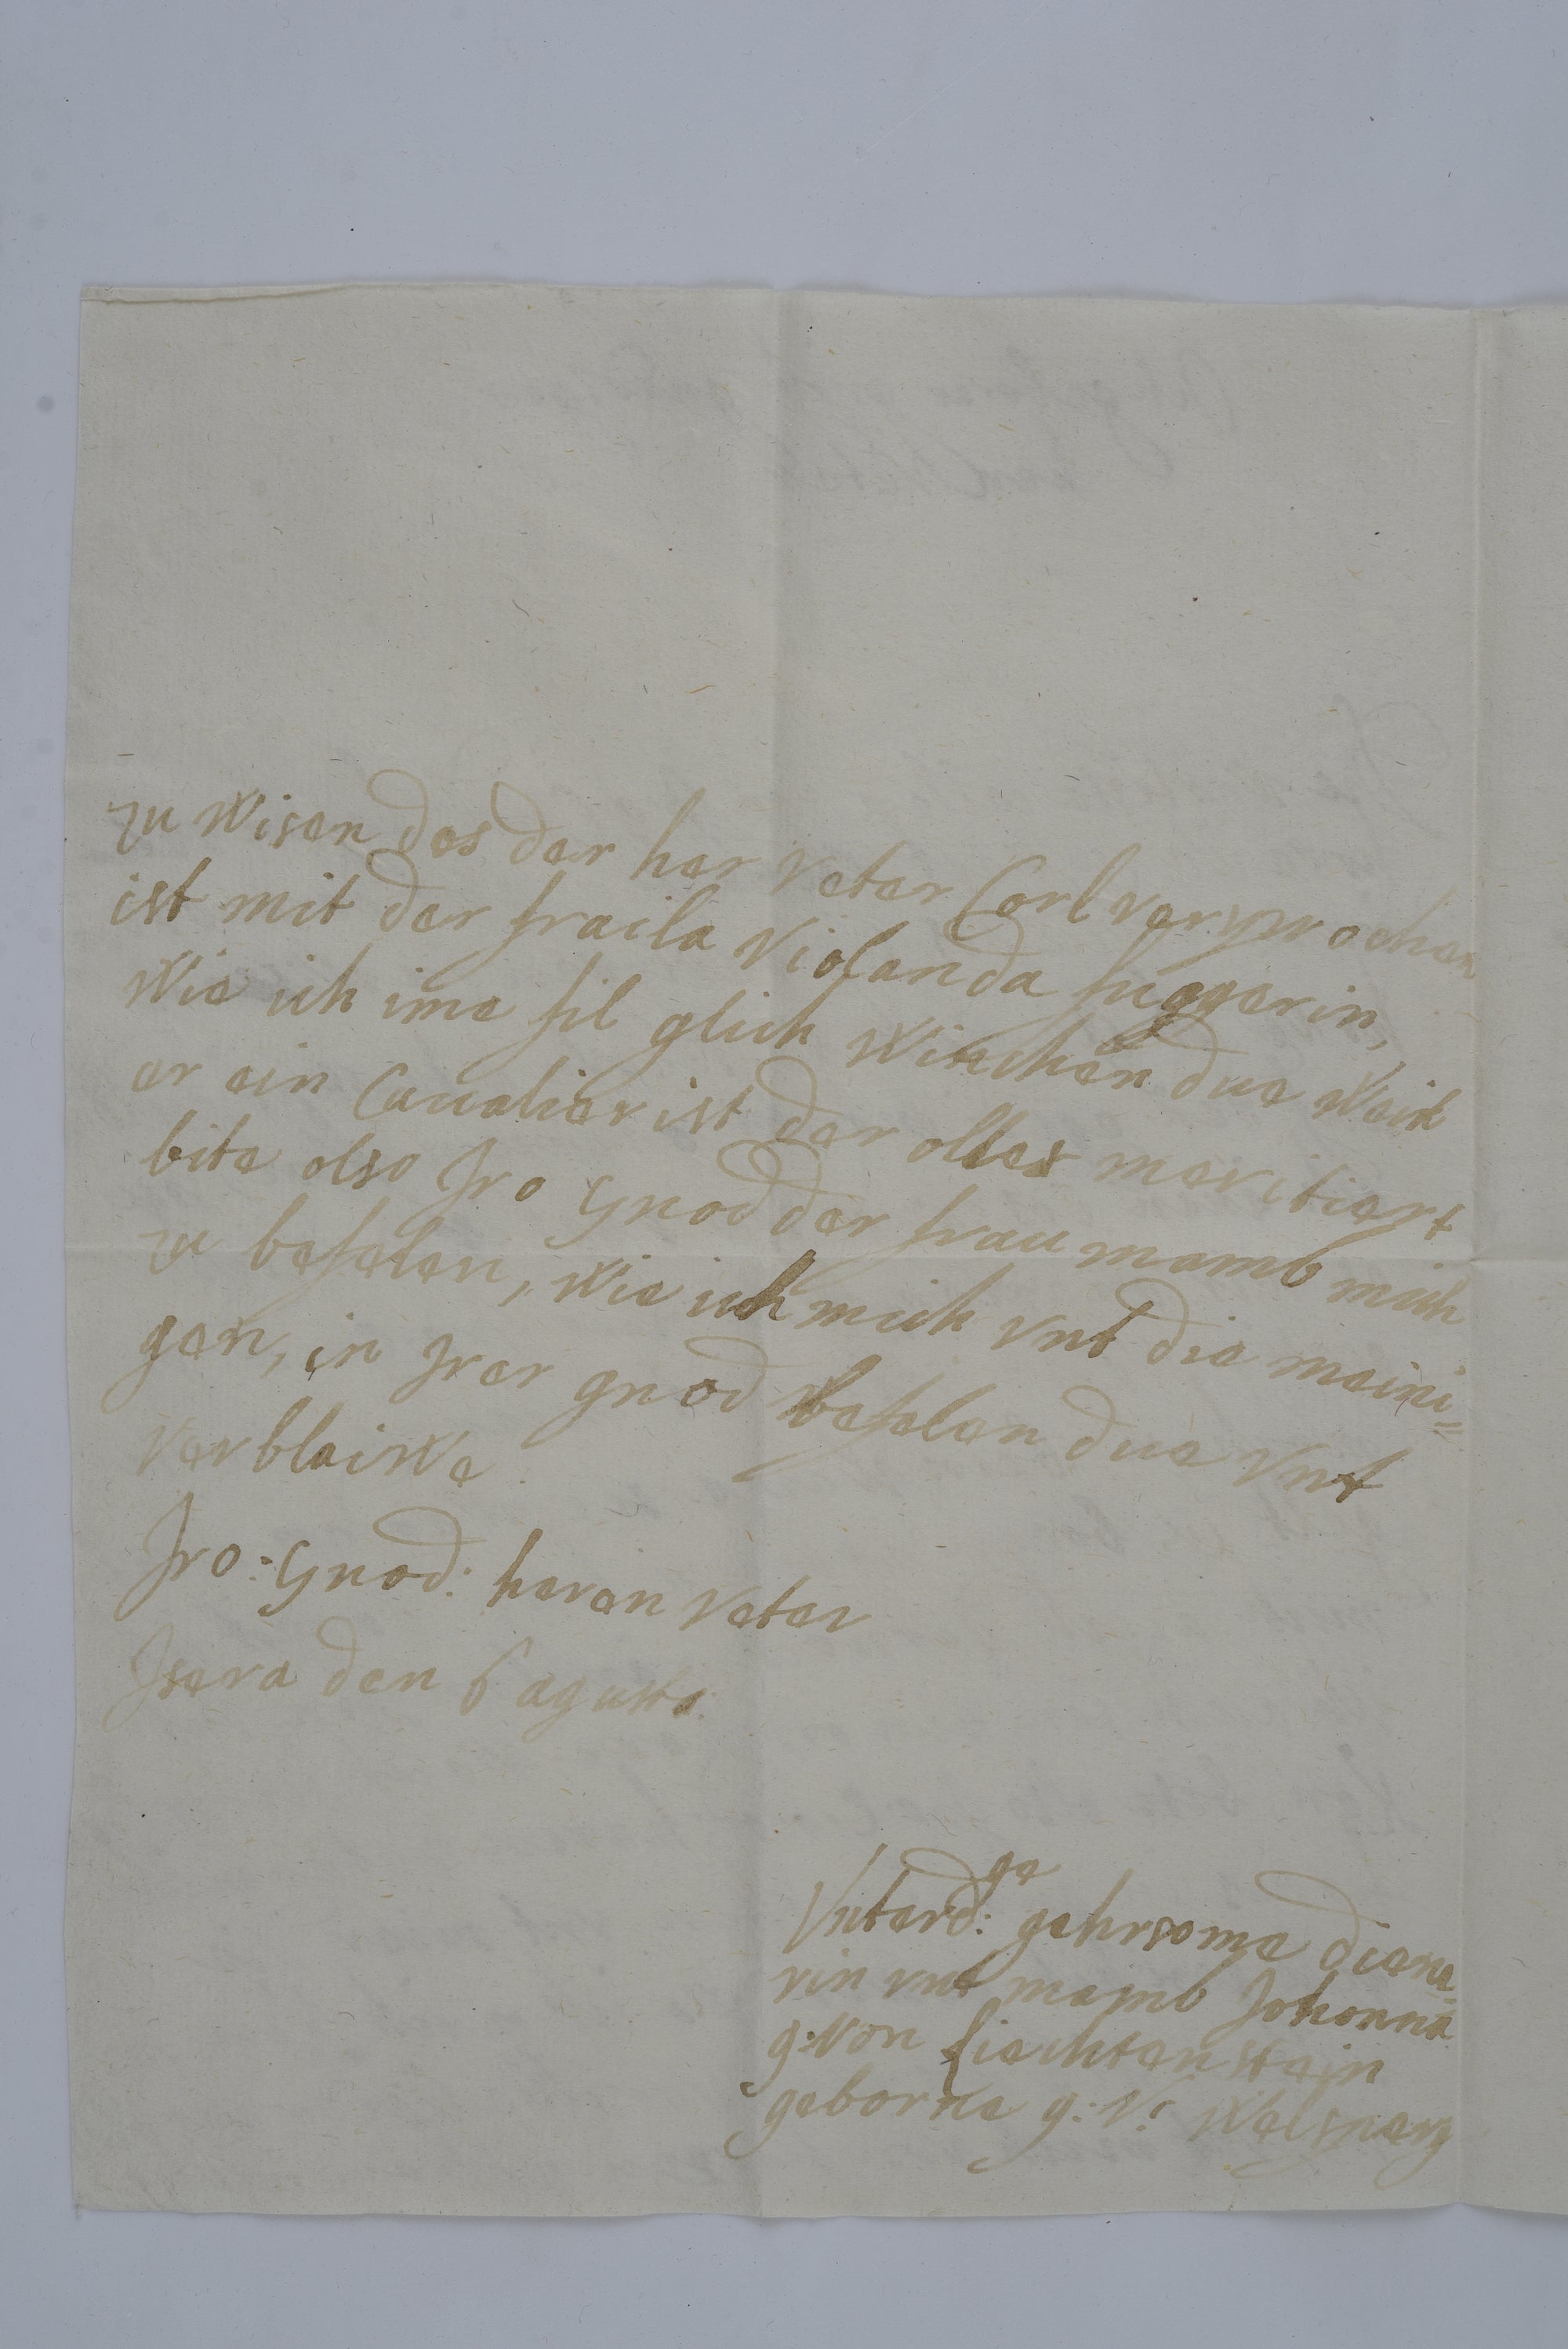 zu wisen das der her veter Carl versprochen
ist mit der fraila Violanda fuggerin,
wie ich ime fil glick winchen due weill
er ein Caualier ist der olles meritiert
bite olso Iro Gnod der frau mamb mich
zu befelen, wie ich mich vnt die meini=
gen, in Irer gnod befelen due vnt
verblaiwe
Iro: Gnod: heren veter
Isera den 6 agusto.
Vnterd:ge gehrsome diene=
rin vnt mamb Johonna
g: von Liechtenstein
geborne g: V: Welsperg